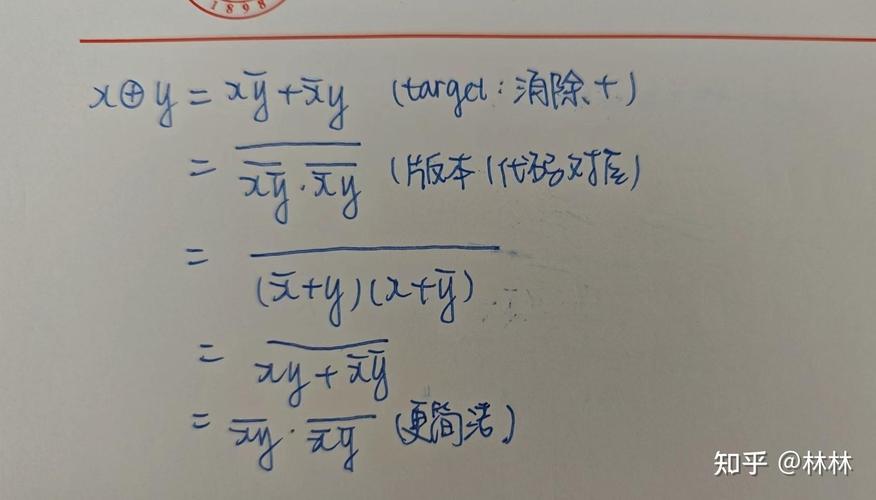 1898
x⊕y = xȳ + x̄y (target: 消除+)
= \overline{\overline{xȳ}·\overline{x̄y}} (版本1代码对应)
= \overline{(x̄+y)(x+ȳ)}
= \overline{xy + x̄ȳ}
= \overline{xy}·\overline{x̄ȳ} (更简洁)
知乎 @林林